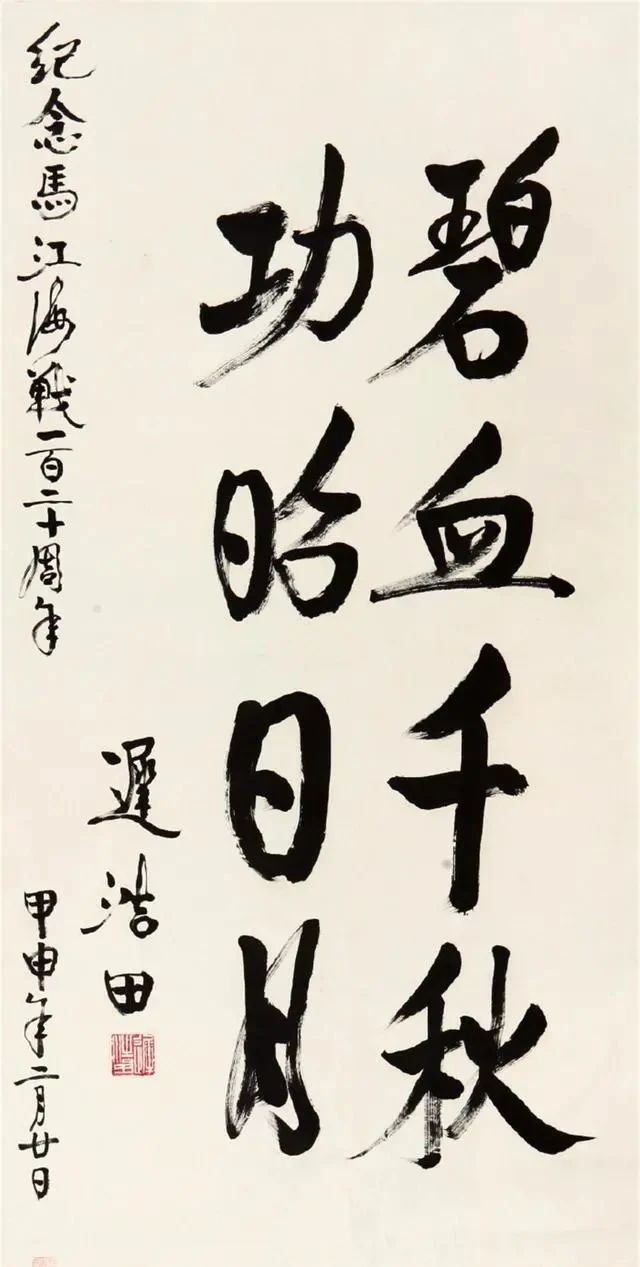 碧血千秋
功昭日月
紀念馬江海戰一百二十周年
遲浩田
甲申年二月廿日